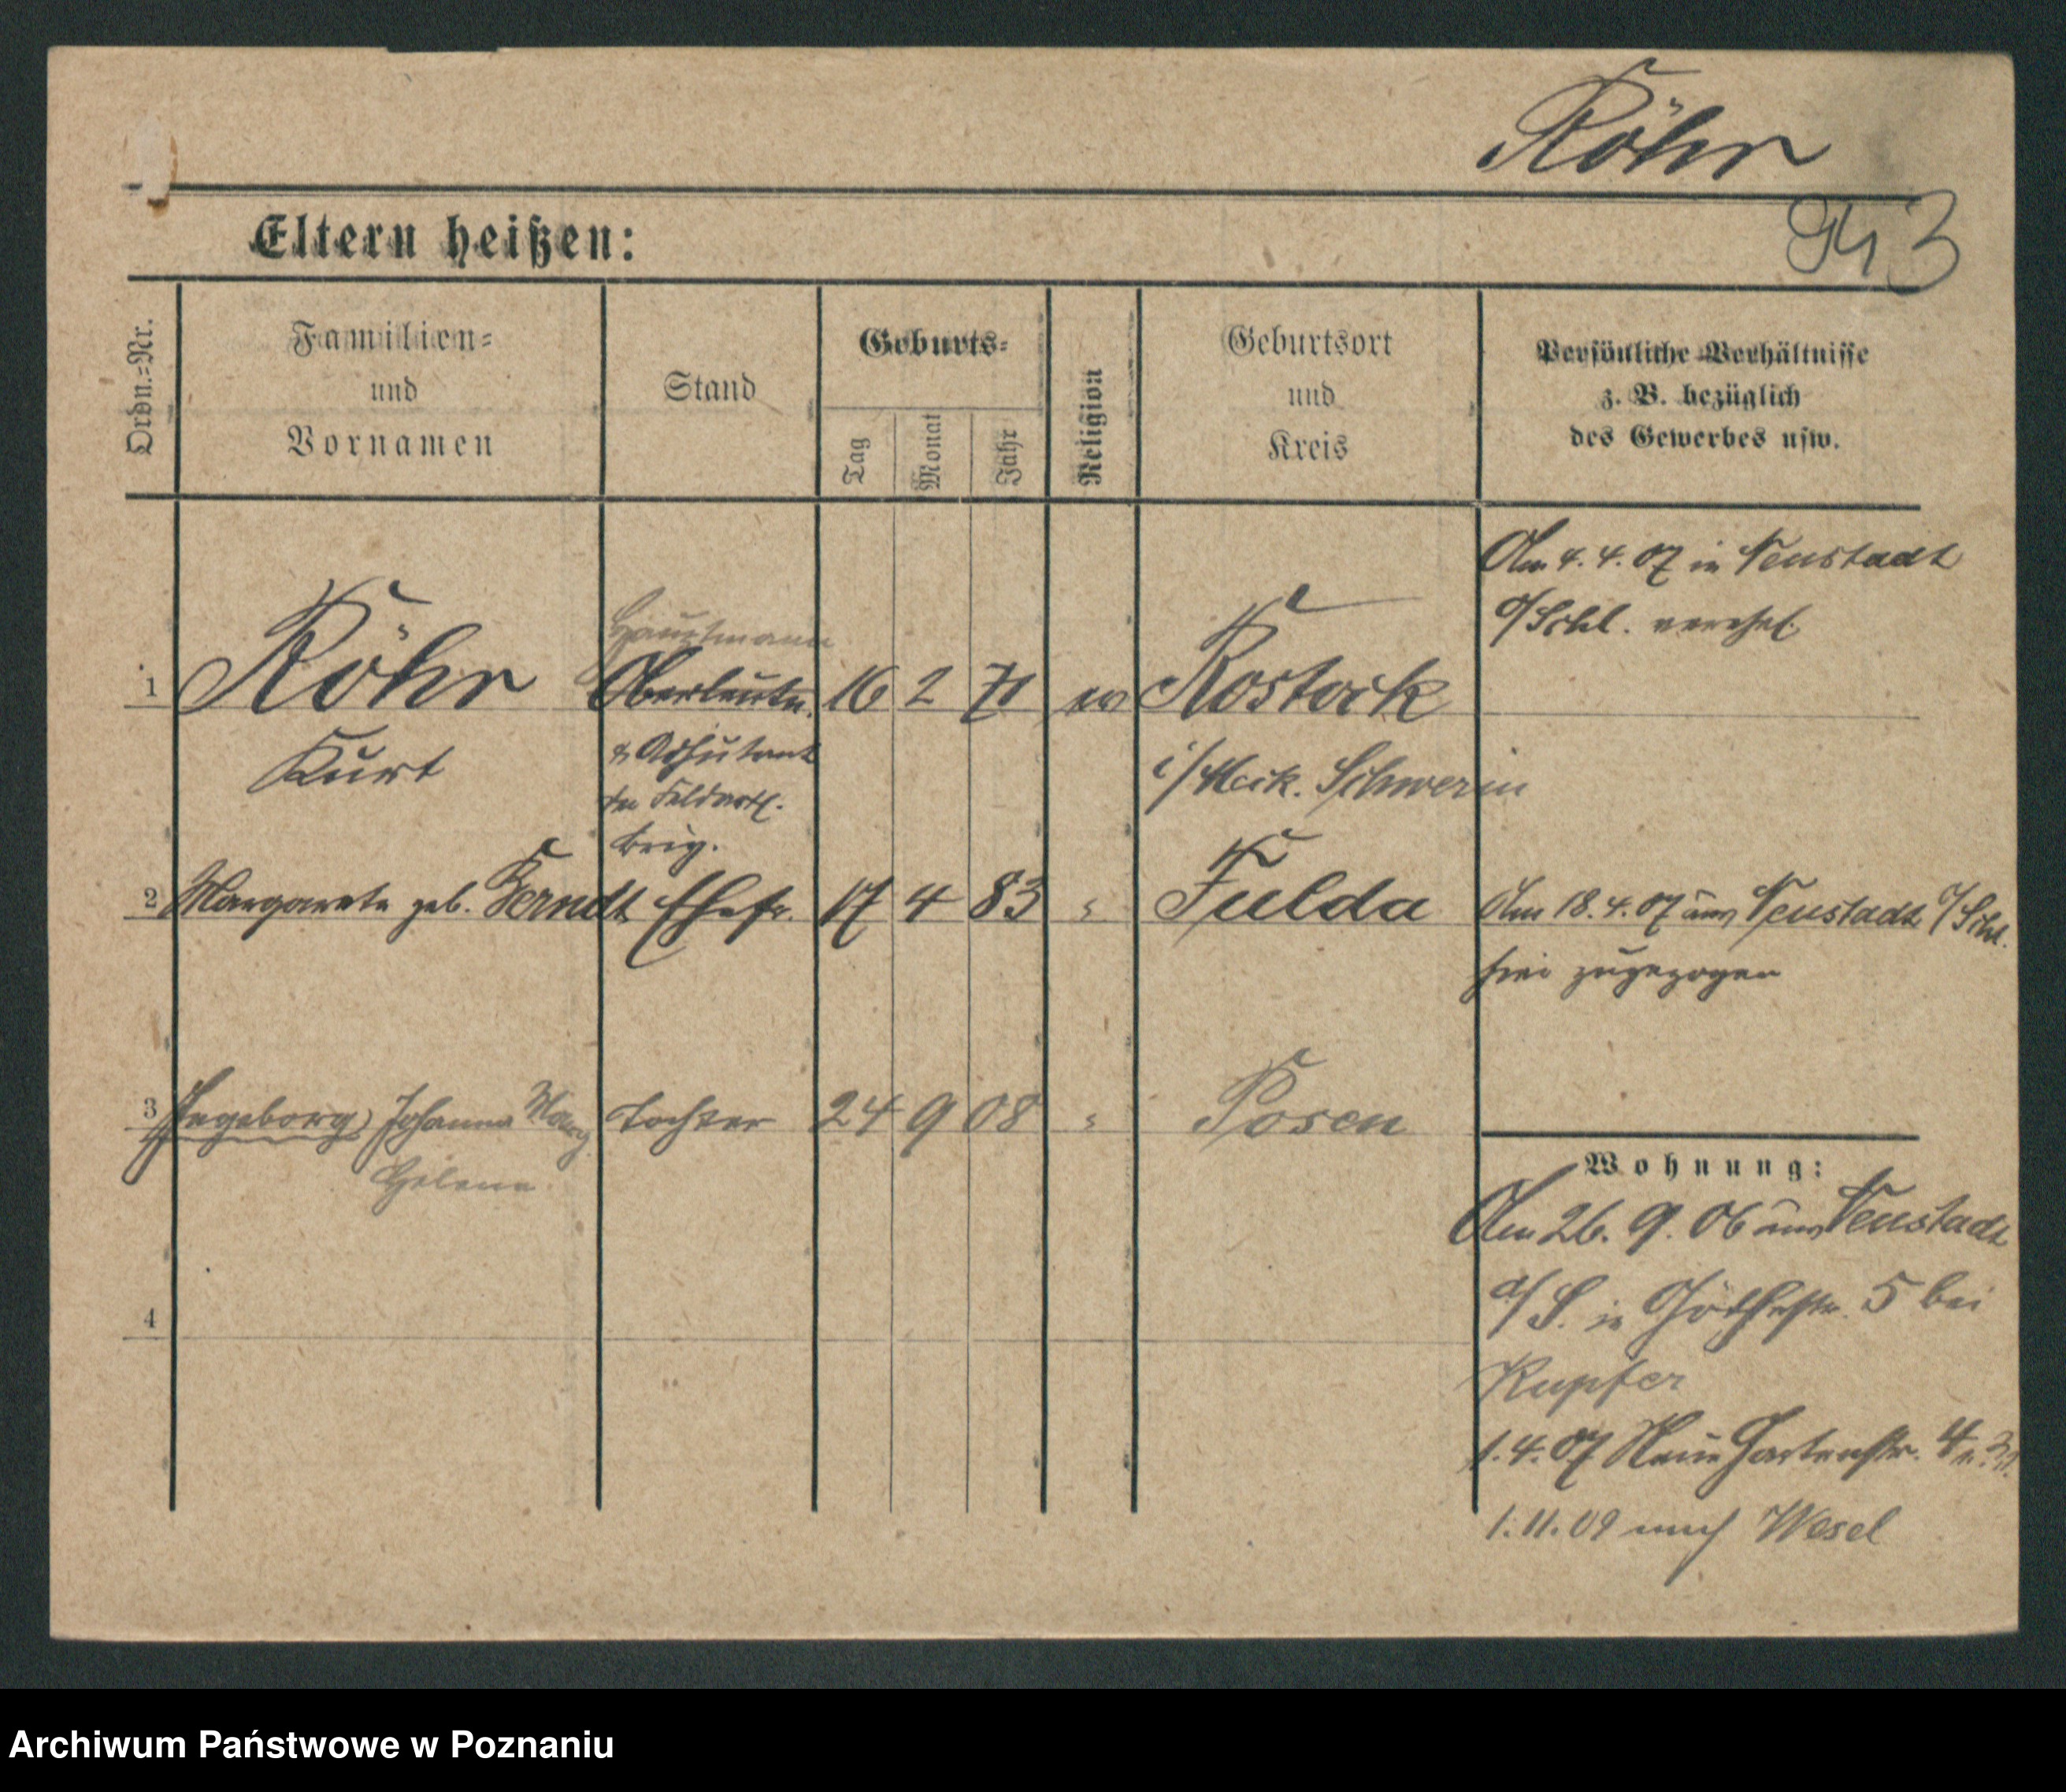 Röhr
Eltern heißen:
943
Ordn.=Nr.
Familien=
und
Vornamen
Stand
Geburts=
Tag
Monat
Jahr
Religion
Geburtsort
und
Kreis
Persönliche Verhältnisse
z. B. bezüglich
des Gewerbes usw.
Am 4. 4. 07 in Neustadt
o/Schl. verehel.
Hauptmann
1 Röhr Oberleutn. 16 2 71 ev Rostock
Kurt & Adjutant i/Meck. Schwerin
der Feldartl.
Brig.
2 Margarete geb. Berndt Ehefr. 17 4 83 " Fulda Am 18. 4. 07 aus Neustadt o/Schl.
hier zugezogen
3 Ingeborg Johanna Marg. Tochter 24 9 08 " Posen
Helene
Wohnung:
Am 26. 9. 06 aus Neustadt
o/S. in Göthestr. 5 bei
Kupfer
4
1. 4. 07 Neue Gartenstr. 4
1. 11. 09 nach Wesel
Archiwum Państwowe w Poznaniu